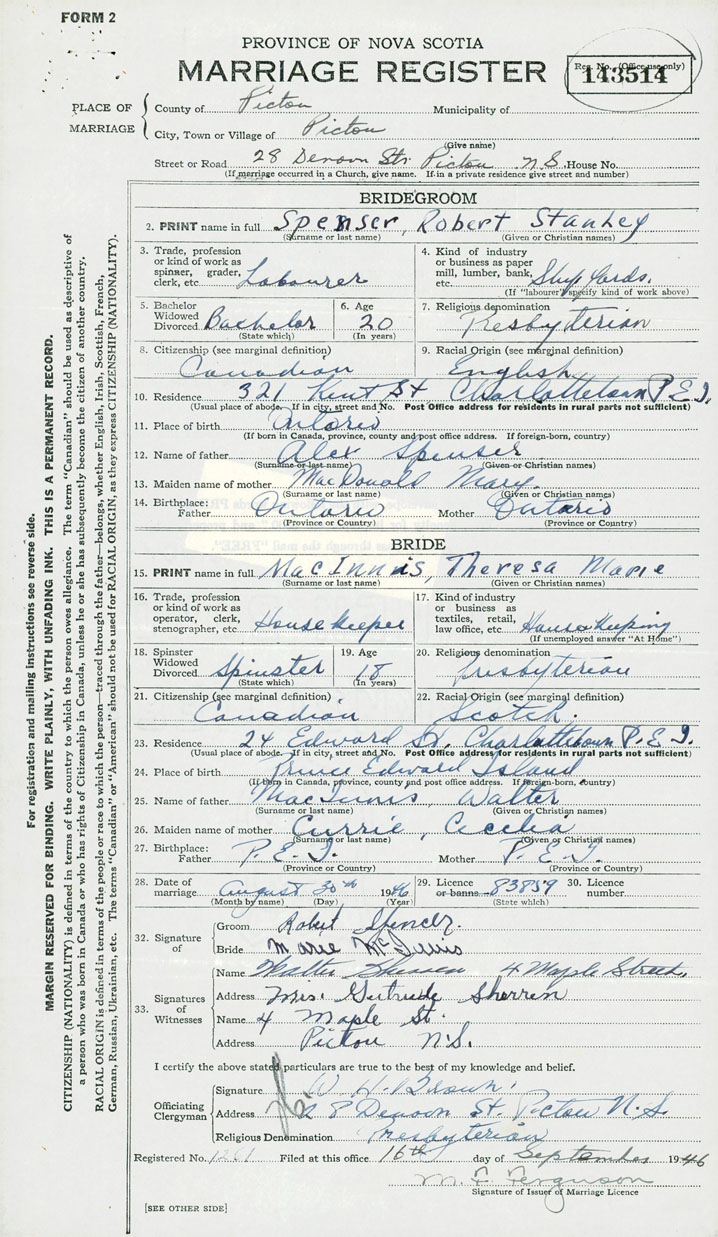 FORM 2
PROVINCE OF NOVA SCOTIA
MARRIAGE REGISTER
Reg. No. (Office use only)
143514
PLACE OF MARRIAGE
County of Pictou Municipality of
City, Town or Village of Pictou
(Give name)
Street or Road 28 Denoon Str. Pictou N.S. House No.
(If marriage occurred in a Church, give name. If in a private residence give street and number)
BRIDEGROOM
2. PRINT name in full Spenser, Robert Stanley
(Surname or last name) (Given or Christian names)
3. Trade, profession or kind of work as spinner, grader, clerk, etc. Labourer
4. Kind of industry or business as paper mill, lumber, bank, etc. Ship Yards.
(If "labourer" specify kind of work above)
5. Bachelor Widowed Divorced Bachelor
(State which)
6. Age 20
(In years)
7. Religious denomination Presbyterian
8. Citizenship (see marginal definition) Canadian
9. Racial Origin (see marginal definition) English
10. Residence 321 Kent St Charlottetown P.E.I.
(Usual place of abode. If in city, street and No. Post Office address for residents in rural parts not sufficient)
11. Place of birth Ontario
(If born in Canada, province, county and post office address. If foreign-born, country)
12. Name of father Alex Spenser
(Surname or last name) (Given or Christian names)
13. Maiden name of mother MacDonald Mary.
(Surname or last name) (Given or Christian names)
14. Birthplace: Father Ontario Mother Ontario
(Province or Country) (Province or Country)
BRIDE
15. PRINT name in full MacInnis, Theresa Marie
(Surname or last name) (Given or Christian names)
16. Trade, profession or kind of work as operator, clerk, stenographer, etc. Housekeeper
17. Kind of industry or business as textiles, retail, law office, etc. Housekeeping
(If unemployed answer "At Home")
18. Spinster Widowed Divorced Spinster
(State which)
19. Age 18
(In years)
20. Religious denomination Presbyterian
21. Citizenship (see marginal definition) Canadian
22. Racial Origin (see marginal definition) Scotch.
23. Residence 24 Edward St. Charlottetown P.E.I.
(Usual place of abode. If in city, street and No. Post Office address for residents in rural parts not sufficient)
24. Place of birth Prince Edward Island
(If born in Canada, province, county and post office address. If foreign-born, country)
25. Name of father MacInnis, Walter
(Surname or last name) (Given or Christian names)
26. Maiden name of mother Currie, Cecelia
(Surname or last name) (Given or Christian names)
27. Birthplace: Father P.E.I. Mother P.E.I.
(Province or Country) (Province or Country)
28. Date of marriage August 30th 1946
(Month by name) (Day) (Year)
29. Licence or banns 83859
(State which)
30. Licence number
32. Signature of
Groom Robert Spencer.
Bride Marie McInnis
33. Signatures of Witnesses
Name Walter Sherren 4 Maple Street,
Address Mrs. Gertrude Sherren
Name 4 Maple St.
Address Pictou N.S.
I certify the above stated particulars are true to the best of my knowledge and belief.
Officiating Clergyman
Signature Brown.
Address 28 Denoon St. Pictou N.S.
Religious Denomination Presbyterian
Registered No. Filed at this office 16th day of September 1946
M. F. Ferguson
Signature of Issuer of Marriage Licence
[SEE OTHER SIDE]
For registration and mailing instructions see reverse side.
MARGIN RESERVED FOR BINDING. WRITE PLAINLY, WITH UNFADING INK. THIS IS A PERMANENT RECORD.
CITIZENSHIP (NATIONALITY) is defined in terms of the country to which the person owes allegiance. The term "Canadian" should be used as descriptive of
a person who was born in Canada or who has rights of Citizenship in Canada, unless he or she has subsequently become the citizen of another country.
RACIAL ORIGIN is defined in terms of the people or race to which the person—traced through the father—belongs, whether English, Irish, Scottish, French,
German, Russian, Ukrainian, etc. The terms "Canadian" or "American" should not be used for RACIAL ORIGIN, as they express CITIZENSHIP (NATIONALITY).